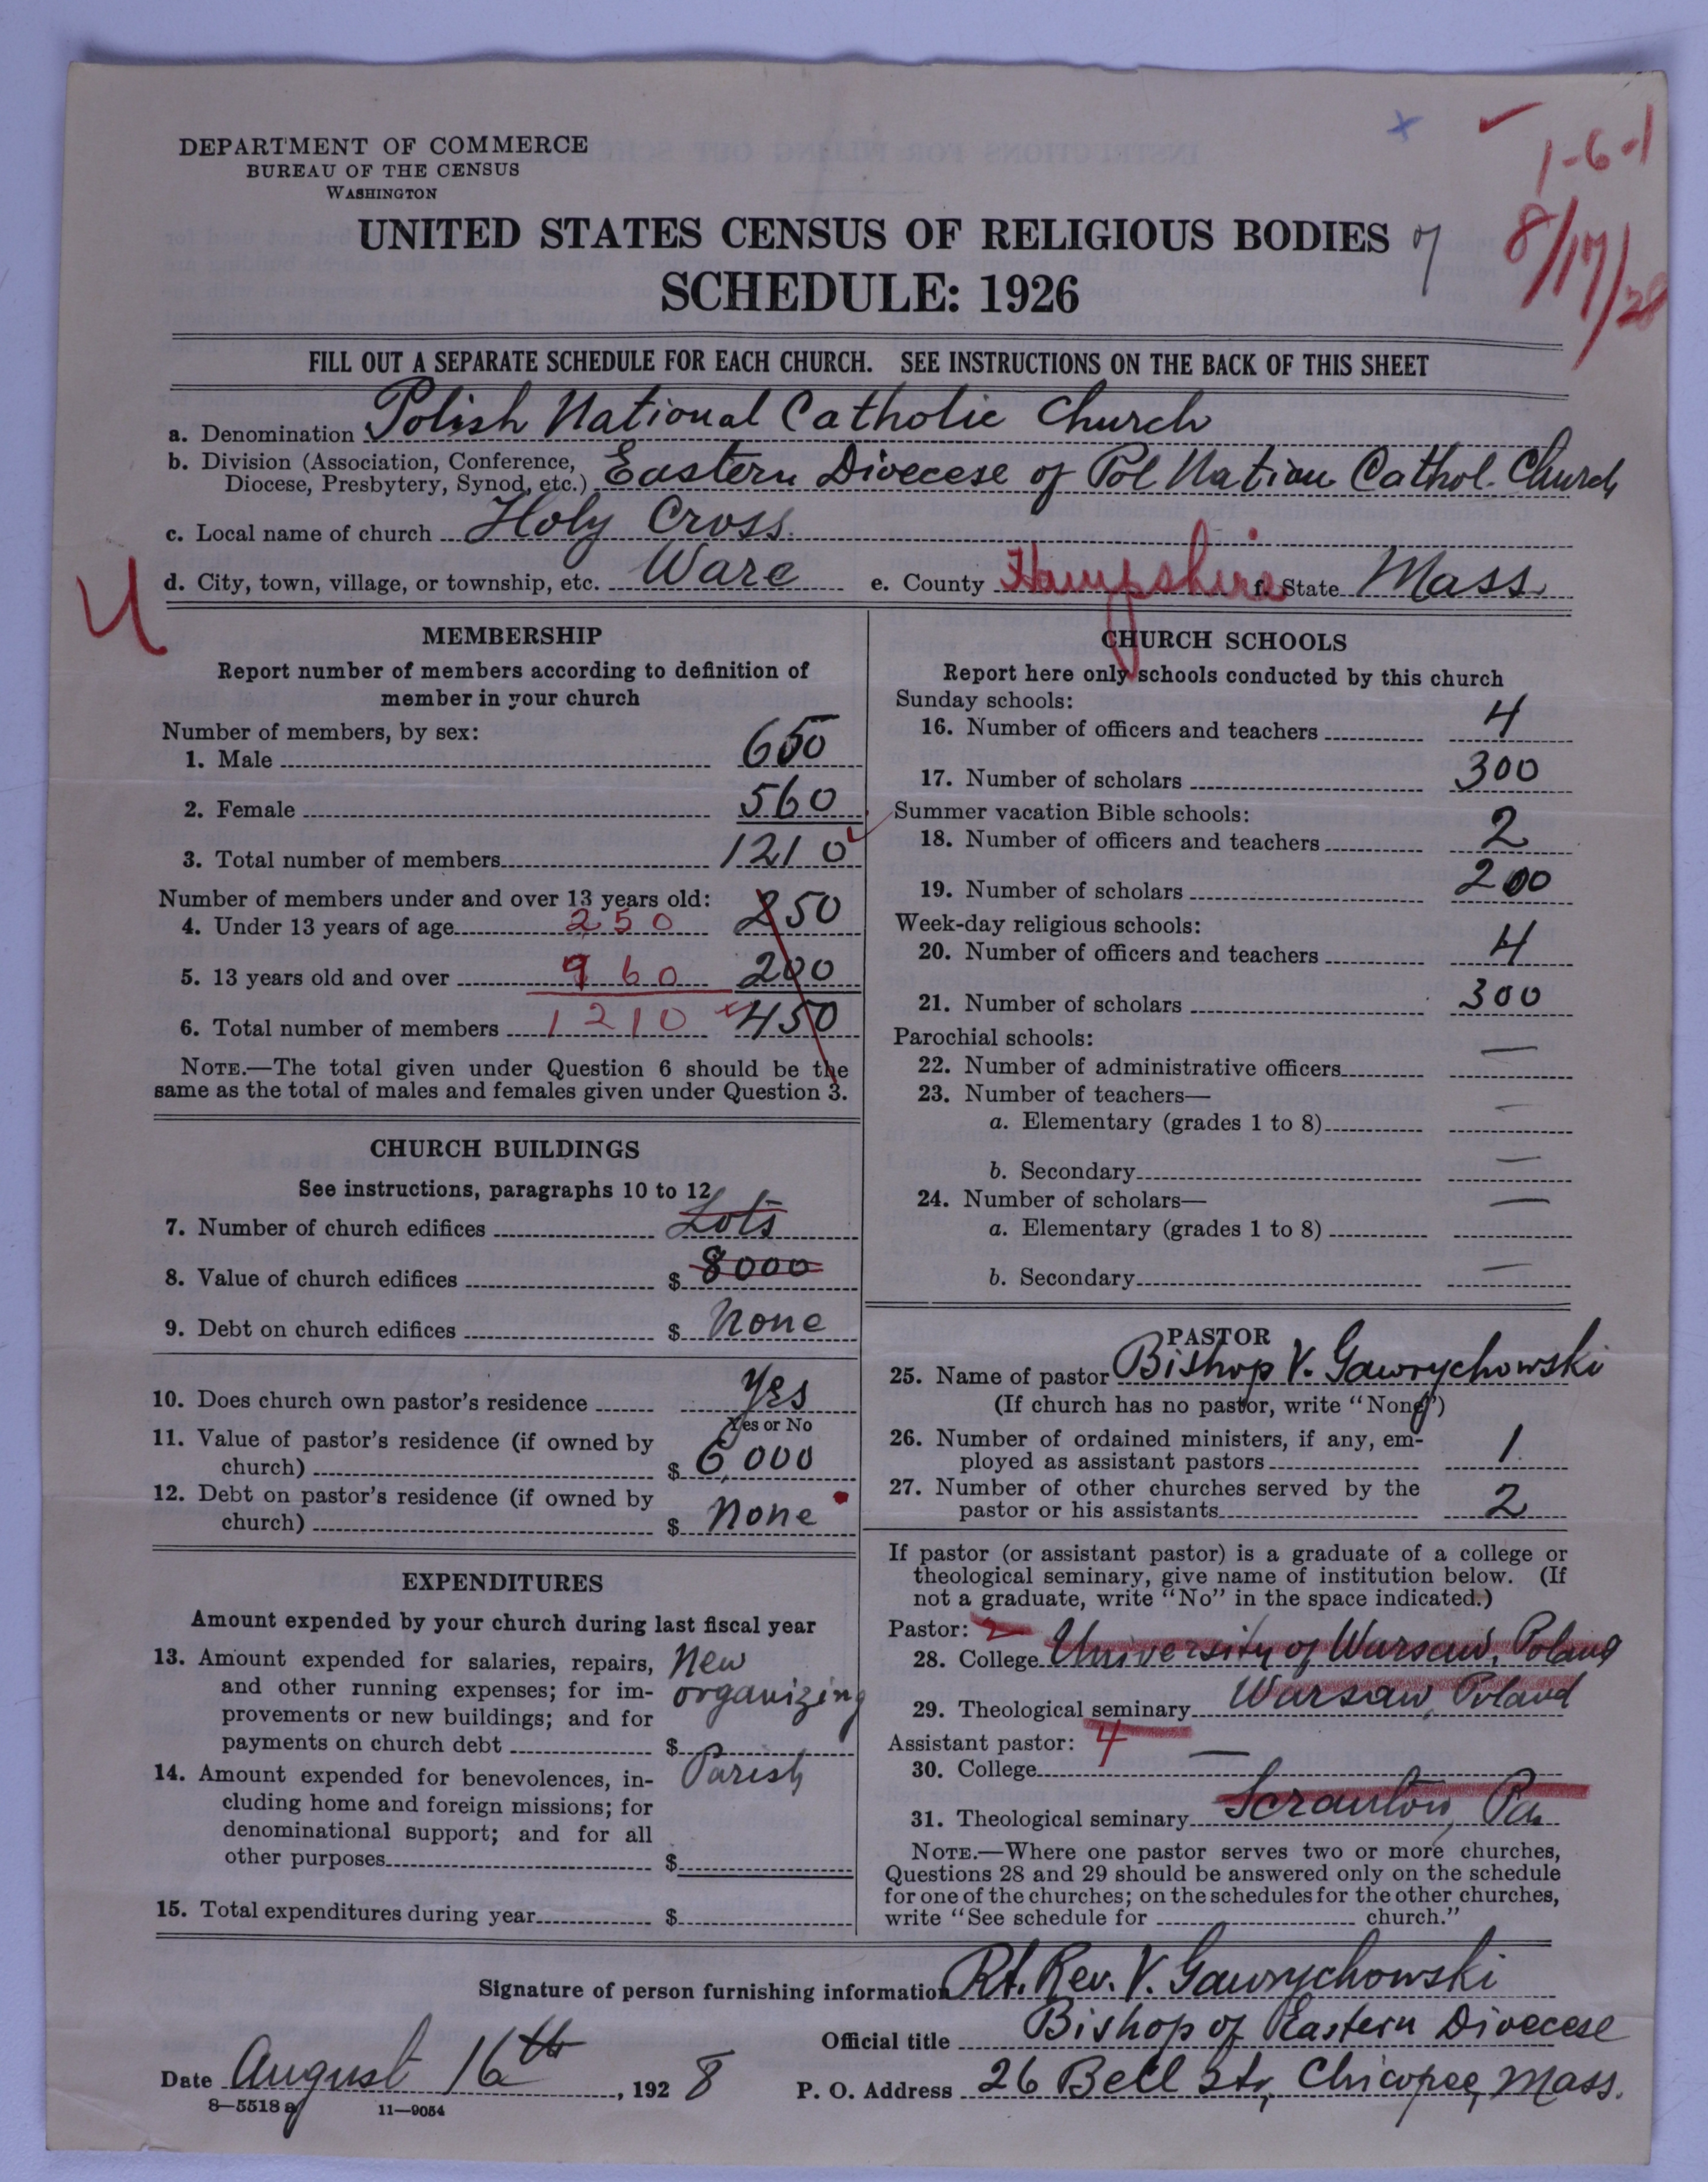 DEPARTMENT OF COMMERCE
BUREAU OF THE CENSUS
WASHINGTON
1-6-1
UNITED STATES CENSUS OF RELIGIOUS BODIES
8/17/28
SCHEDULE: 1926
FILL OUT A SEPARATE SCHEDULE FOR EACH CHURCH. SEE INSTRUCTIONS ON THE BACK OF THIS SHEET
a. Denomination Polish National Catholic Church
b. Division (Association, Conference, Diocese, Presbytery, Synod, etc.) Eastern Diocese of Pol Nation Cathol. Church
c. Local name of church Holy Cross.
d. City, town, village, or township, etc. Ware e. County Hampshire f. State Mass.
U
MEMBERSHIP
Report number of members according to definition of
member in your church
Number of members, by sex:
1. Male 650
2. Female 560
3. Total number of members 1210
Number of members under and over 13 years old:
4. Under 13 years of age 250 250
5. 13 years old and over 960 200
6. Total number of members 1210 450
NOTE.—The total given under Question 6 should be the
same as the total of males and females given under Question 3.
CHURCH BUILDINGS
See instructions, paragraphs 10 to 12
7. Number of church edifices Lots
8. Value of church edifices $ 8000
9. Debt on church edifices $ None
10. Does church own pastor's residence Yes
Yes or No
11. Value of pastor's residence (if owned by
church) $ 6,000
12. Debt on pastor's residence (if owned by
church) $ None
EXPENDITURES
Amount expended by your church during last fiscal year
13. Amount expended for salaries, repairs, New
and other running expenses; for im- organizing
provements or new buildings; and for
payments on church debt $
14. Amount expended for benevolences, in- Parish
cluding home and foreign missions; for
denominational support; and for all
other purposes $
15. Total expenditures during year $
CHURCH SCHOOLS
Report here only schools conducted by this church
Sunday schools:
16. Number of officers and teachers 4
17. Number of scholars 300
Summer vacation Bible schools:
18. Number of officers and teachers 2
19. Number of scholars 200
Week-day religious schools:
20. Number of officers and teachers 4
21. Number of scholars 300
Parochial schools:
22. Number of administrative officers —
23. Number of teachers—
a. Elementary (grades 1 to 8) —
b. Secondary —
24. Number of scholars—
a. Elementary (grades 1 to 8) —
b. Secondary —
PASTOR
25. Name of pastor Bishop V. Gawrychowski
(If church has no pastor, write "None")
26. Number of ordained ministers, if any, em-
ployed as assistant pastors 1
27. Number of other churches served by the
pastor or his assistants 2
If pastor (or assistant pastor) is a graduate of a college or
theological seminary, give name of institution below. (If
not a graduate, write "No" in the space indicated.)
Pastor: 2
28. College University of Warsaw, Poland
29. Theological seminary Warsaw, Poland
Assistant pastor: 4
30. College —
31. Theological seminary Scranton, Pa
NOTE.—Where one pastor serves two or more churches,
Questions 28 and 29 should be answered only on the schedule
for one of the churches; on the schedules for the other churches,
write "See schedule for church."
Signature of person furnishing information Rt. Rev. V. Gawrychowski
Official title Bishop of Eastern Diocese
Date August 16th, 1928 P. O. Address 26 Bell str, Chicopee, Mass.
8—5518 a 11—9054